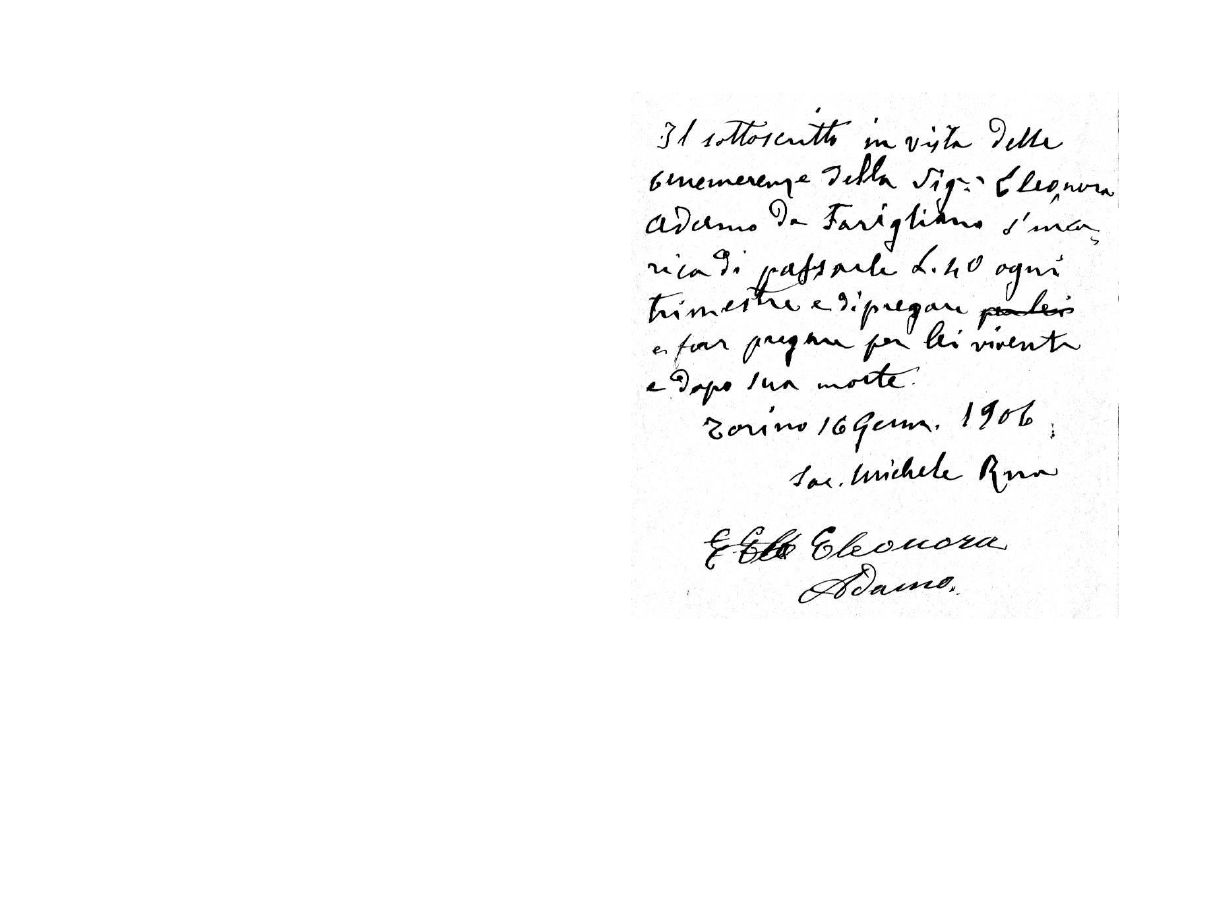 Il sottoscritto in vista delle
benemerenze della Sigª Eleonora
Adamo da Farigliano s'inca-
rica di passarle L. 40 ogni
trimestre e di pregare per lei
e far pregare per lei vivente
e dopo sua morte.
Torino 16 Genn. 1906
Sac. Michele Rua
E Ele Eleonora
Adamo.